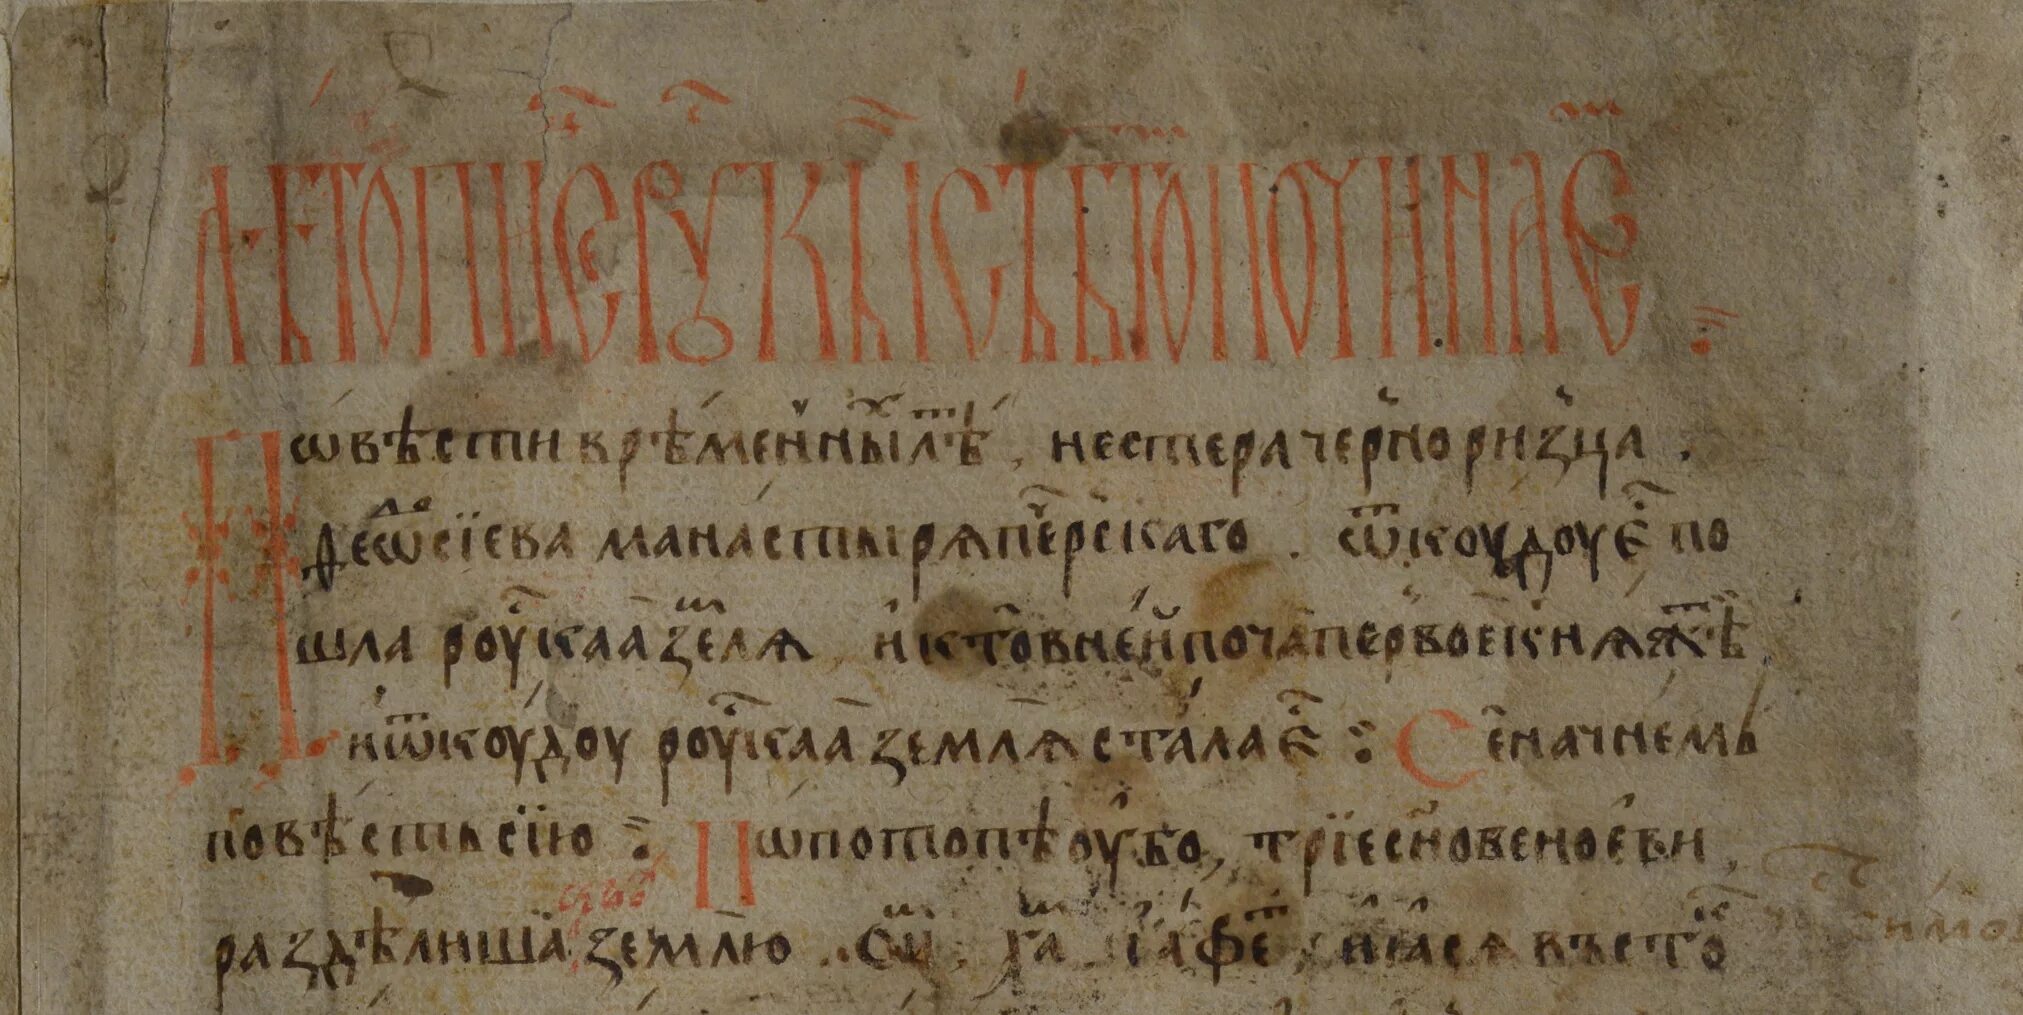 Лѣтописе́ць рꙋ́скыи съ бг҃омъ починаемъ
Пѡвѣсти врѣме́нныⷯ лѣⷮ, нестера чернори́зца.
Ѳеѡⷣсїева манастырѧ пече́рскаго. ѿкоудоу єⷭ҇ по
шла роу́скаа зеⷨлѧ и́ кто в не́й поча́ пе́рвое кнѧжⷮѣ
и҆ ѿкоудоу роу́скаа землѧ ста́ла єⷭ҇ ⁘ Се́ начнемь
повѣсть сїю ⁘ По пѡтопѣ оу҆бо, трїе сн҃ове ноеви,
раздѣлиша зе́млю. Сиⷨ, хаⷨ, і҆афеⷮ, и҆ ꙗ҆сѧ въстоⷦ҇